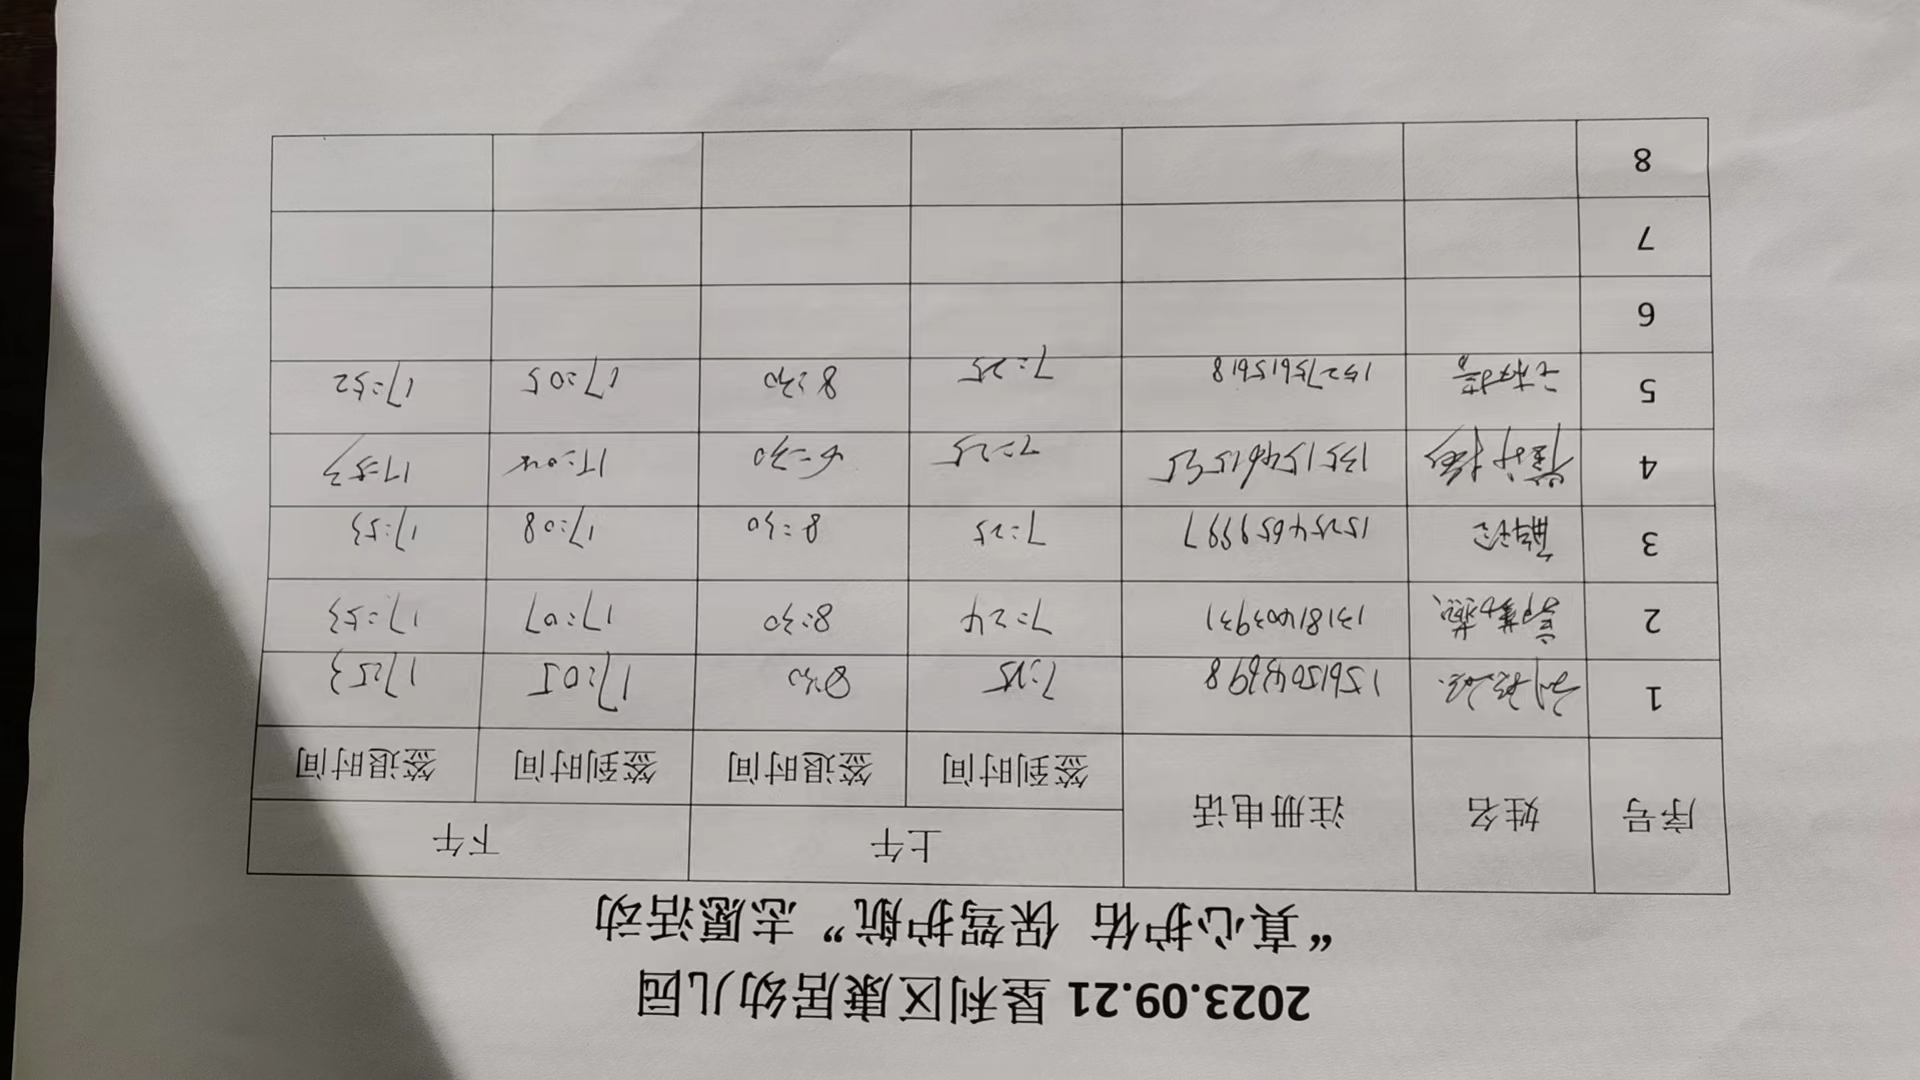 2023.09.21 垦利区康居幼儿园
“真心护佑 保驾护航” 志愿活动
序号 姓名 注册电话 上午 下午
签到时间 签退时间 签到时间 签退时间
1 15615043698 7:25 8:30 17:05 17:53
2 13181403931 7:24 8:30 17:07 17:53
3 15254659997 7:25 8:30 17:08 17:53
4 13515461535 7:25 8:30 17:04 17:53
5 15275615618 7:25 8:30 17:05 17:52
6
7
8